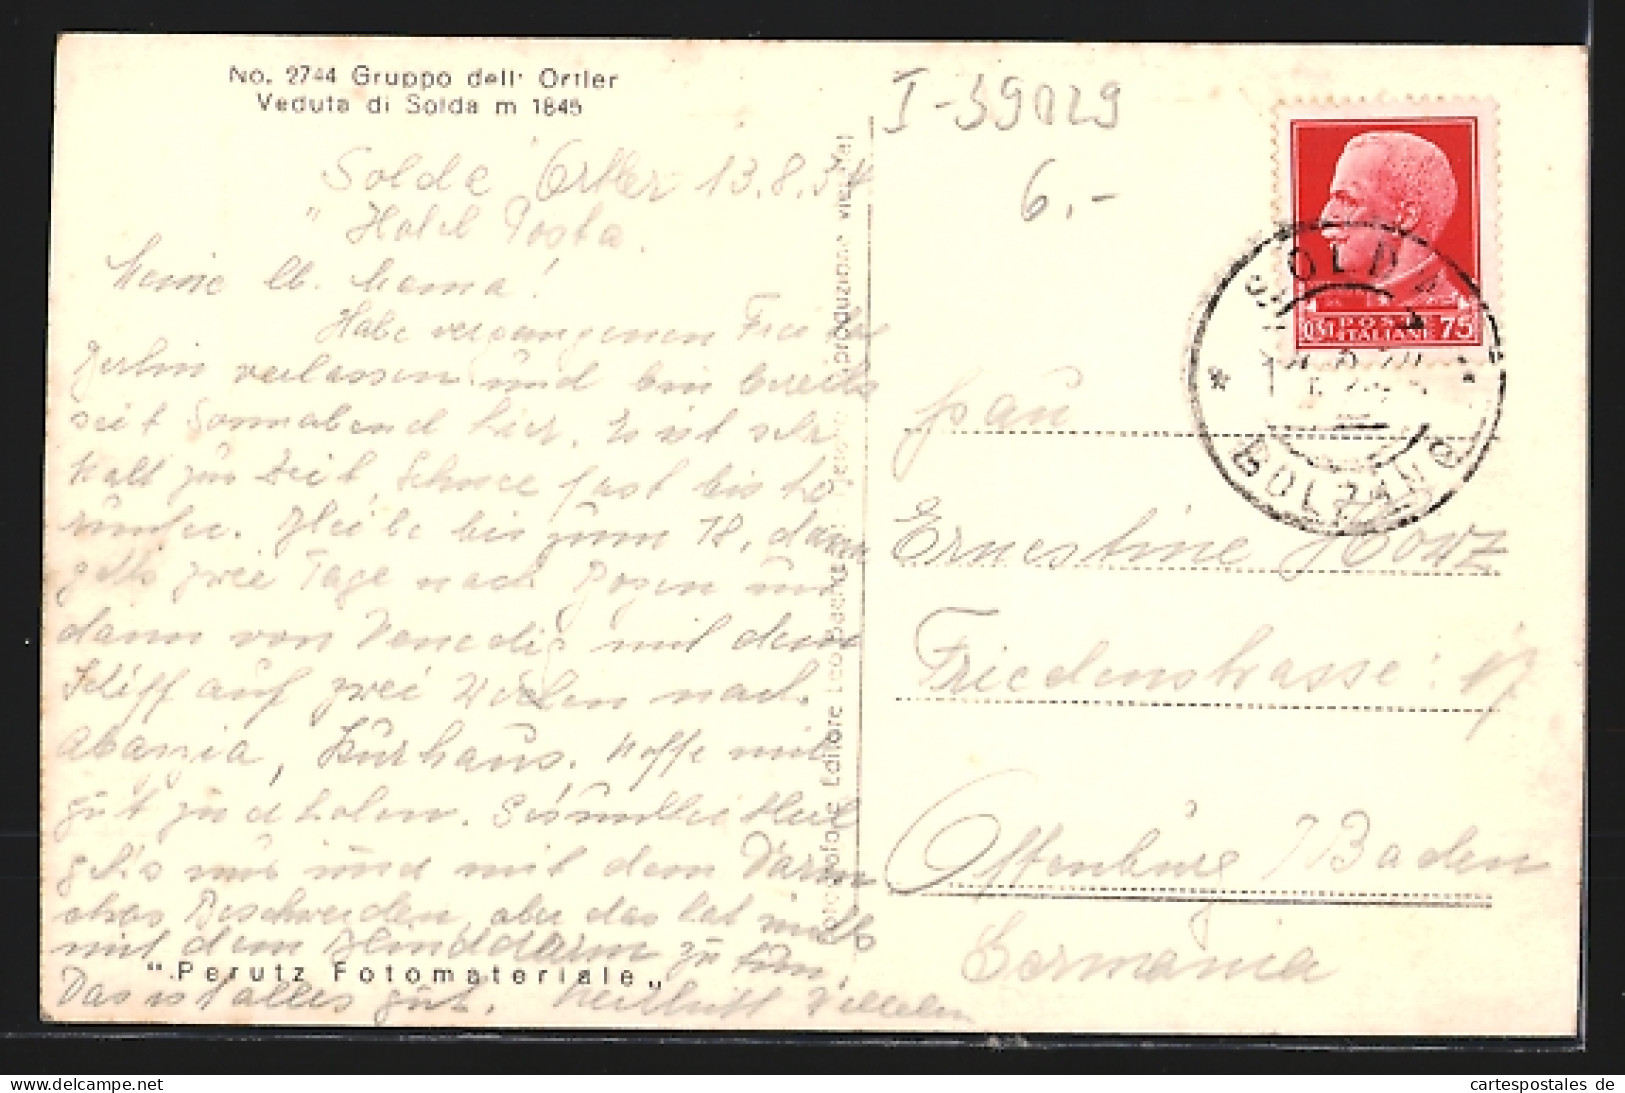 No. 2744 Gruppo dell' Ortler
Veduta di Solda m 1845
Solda Ortler 13.8.34
"Hotel Posta.
Meine lb. Mama!
Habe vergangenen Frei
Berlin verlassen und bin bereits
seit Sonnabend hier. Es ist sehr
kalt zur Zeit, Schnee fast bis
runter. Bleibe bis zum 18, dann
gehts zwei Tage nach Bozen und
dann von Venedig mit dem
Schiff auf zwei Wochen nach
Abazia, Kurhaus. Hoffe mich
gut zu erholen.
geht's mir und mit dem Darm
etwas Beschwerden, aber das hat nichts
mit dem Blinddarm zu tun.
"Perutz Fotomateriale"
Das ist alles gut. Wilhelm
I-39029
6.-
POSTE
ITALIANE 75
SOLDA
BOLZANO
Frau
Ernestine
Friedenstrasse: 17
Offenburg / Baden
Germania
Delcampe.net
cartespostales de